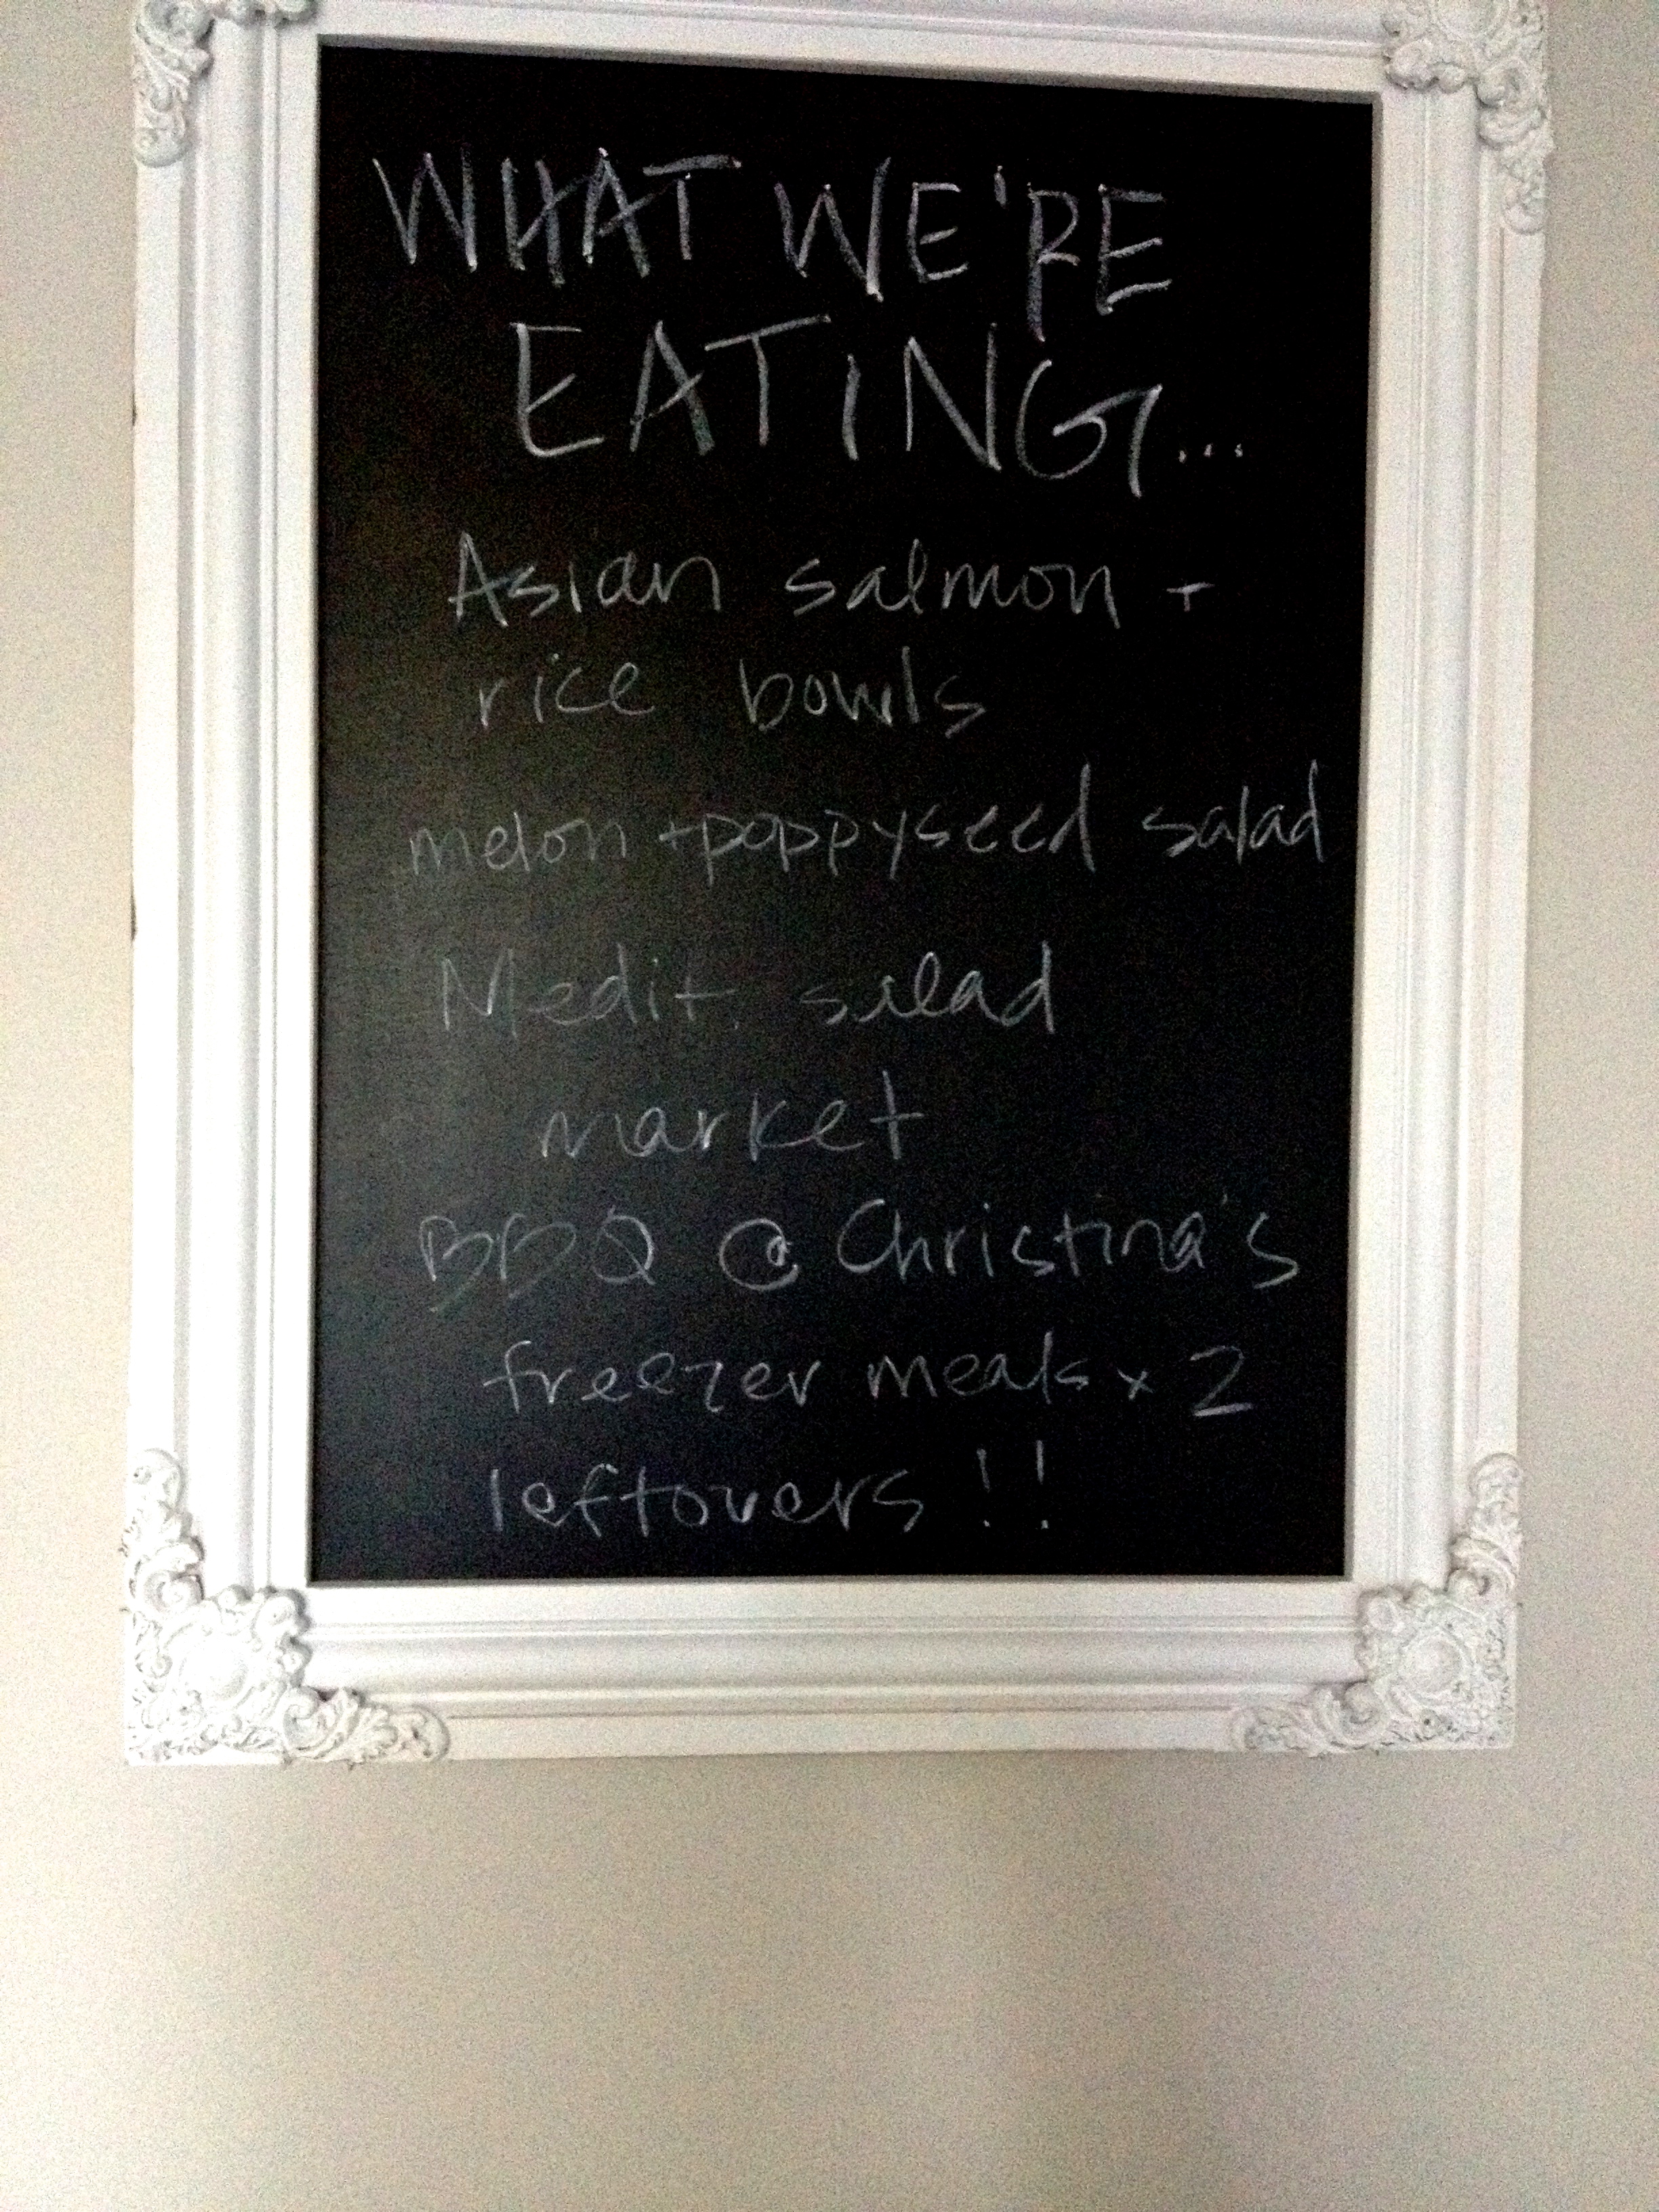 WHAT WE'RE
EATING...
Asian salmon +
rice bowls
melon + poppyseed salad
Medit. salad
market
BBQ @ Christina's
freezer meals x 2
leftovers !!